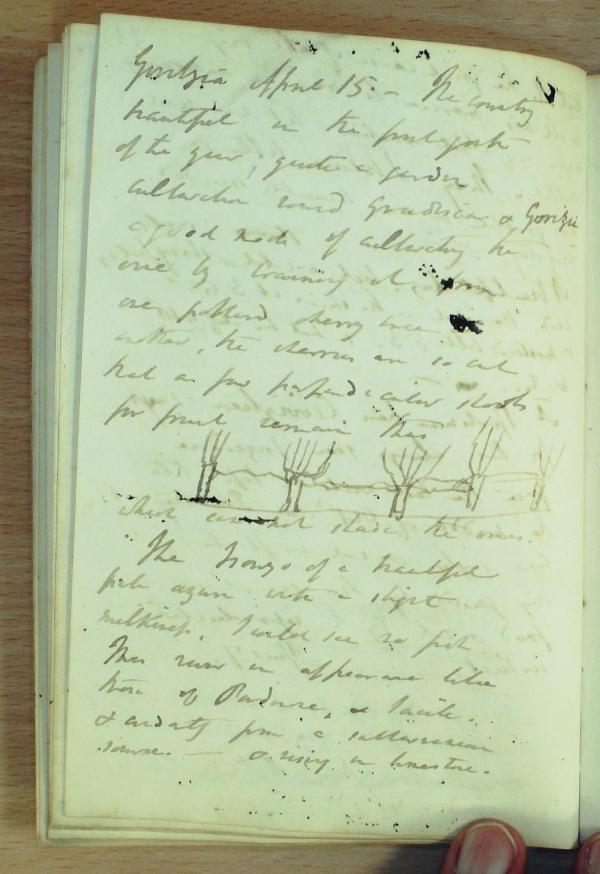 Goritzia April 15 - The country
beautiful in the first fresh
of the year; quite a garden
cultivation round Gradisca & Gorizia
a good mode of cultivating the
vine by training it from
one pollard cherry tree to
another, the cherries are so cut
that a few perpendicular shoots
for fruit remain thus
which cannot shade the vines.
The Isonzo of a beautiful
pale azure with a slight
milkiness. I could see no fish
This river in appearance like
those of Pordenone, & Sacile.
& evidently from a subterranean
source. — & rising in limestone.